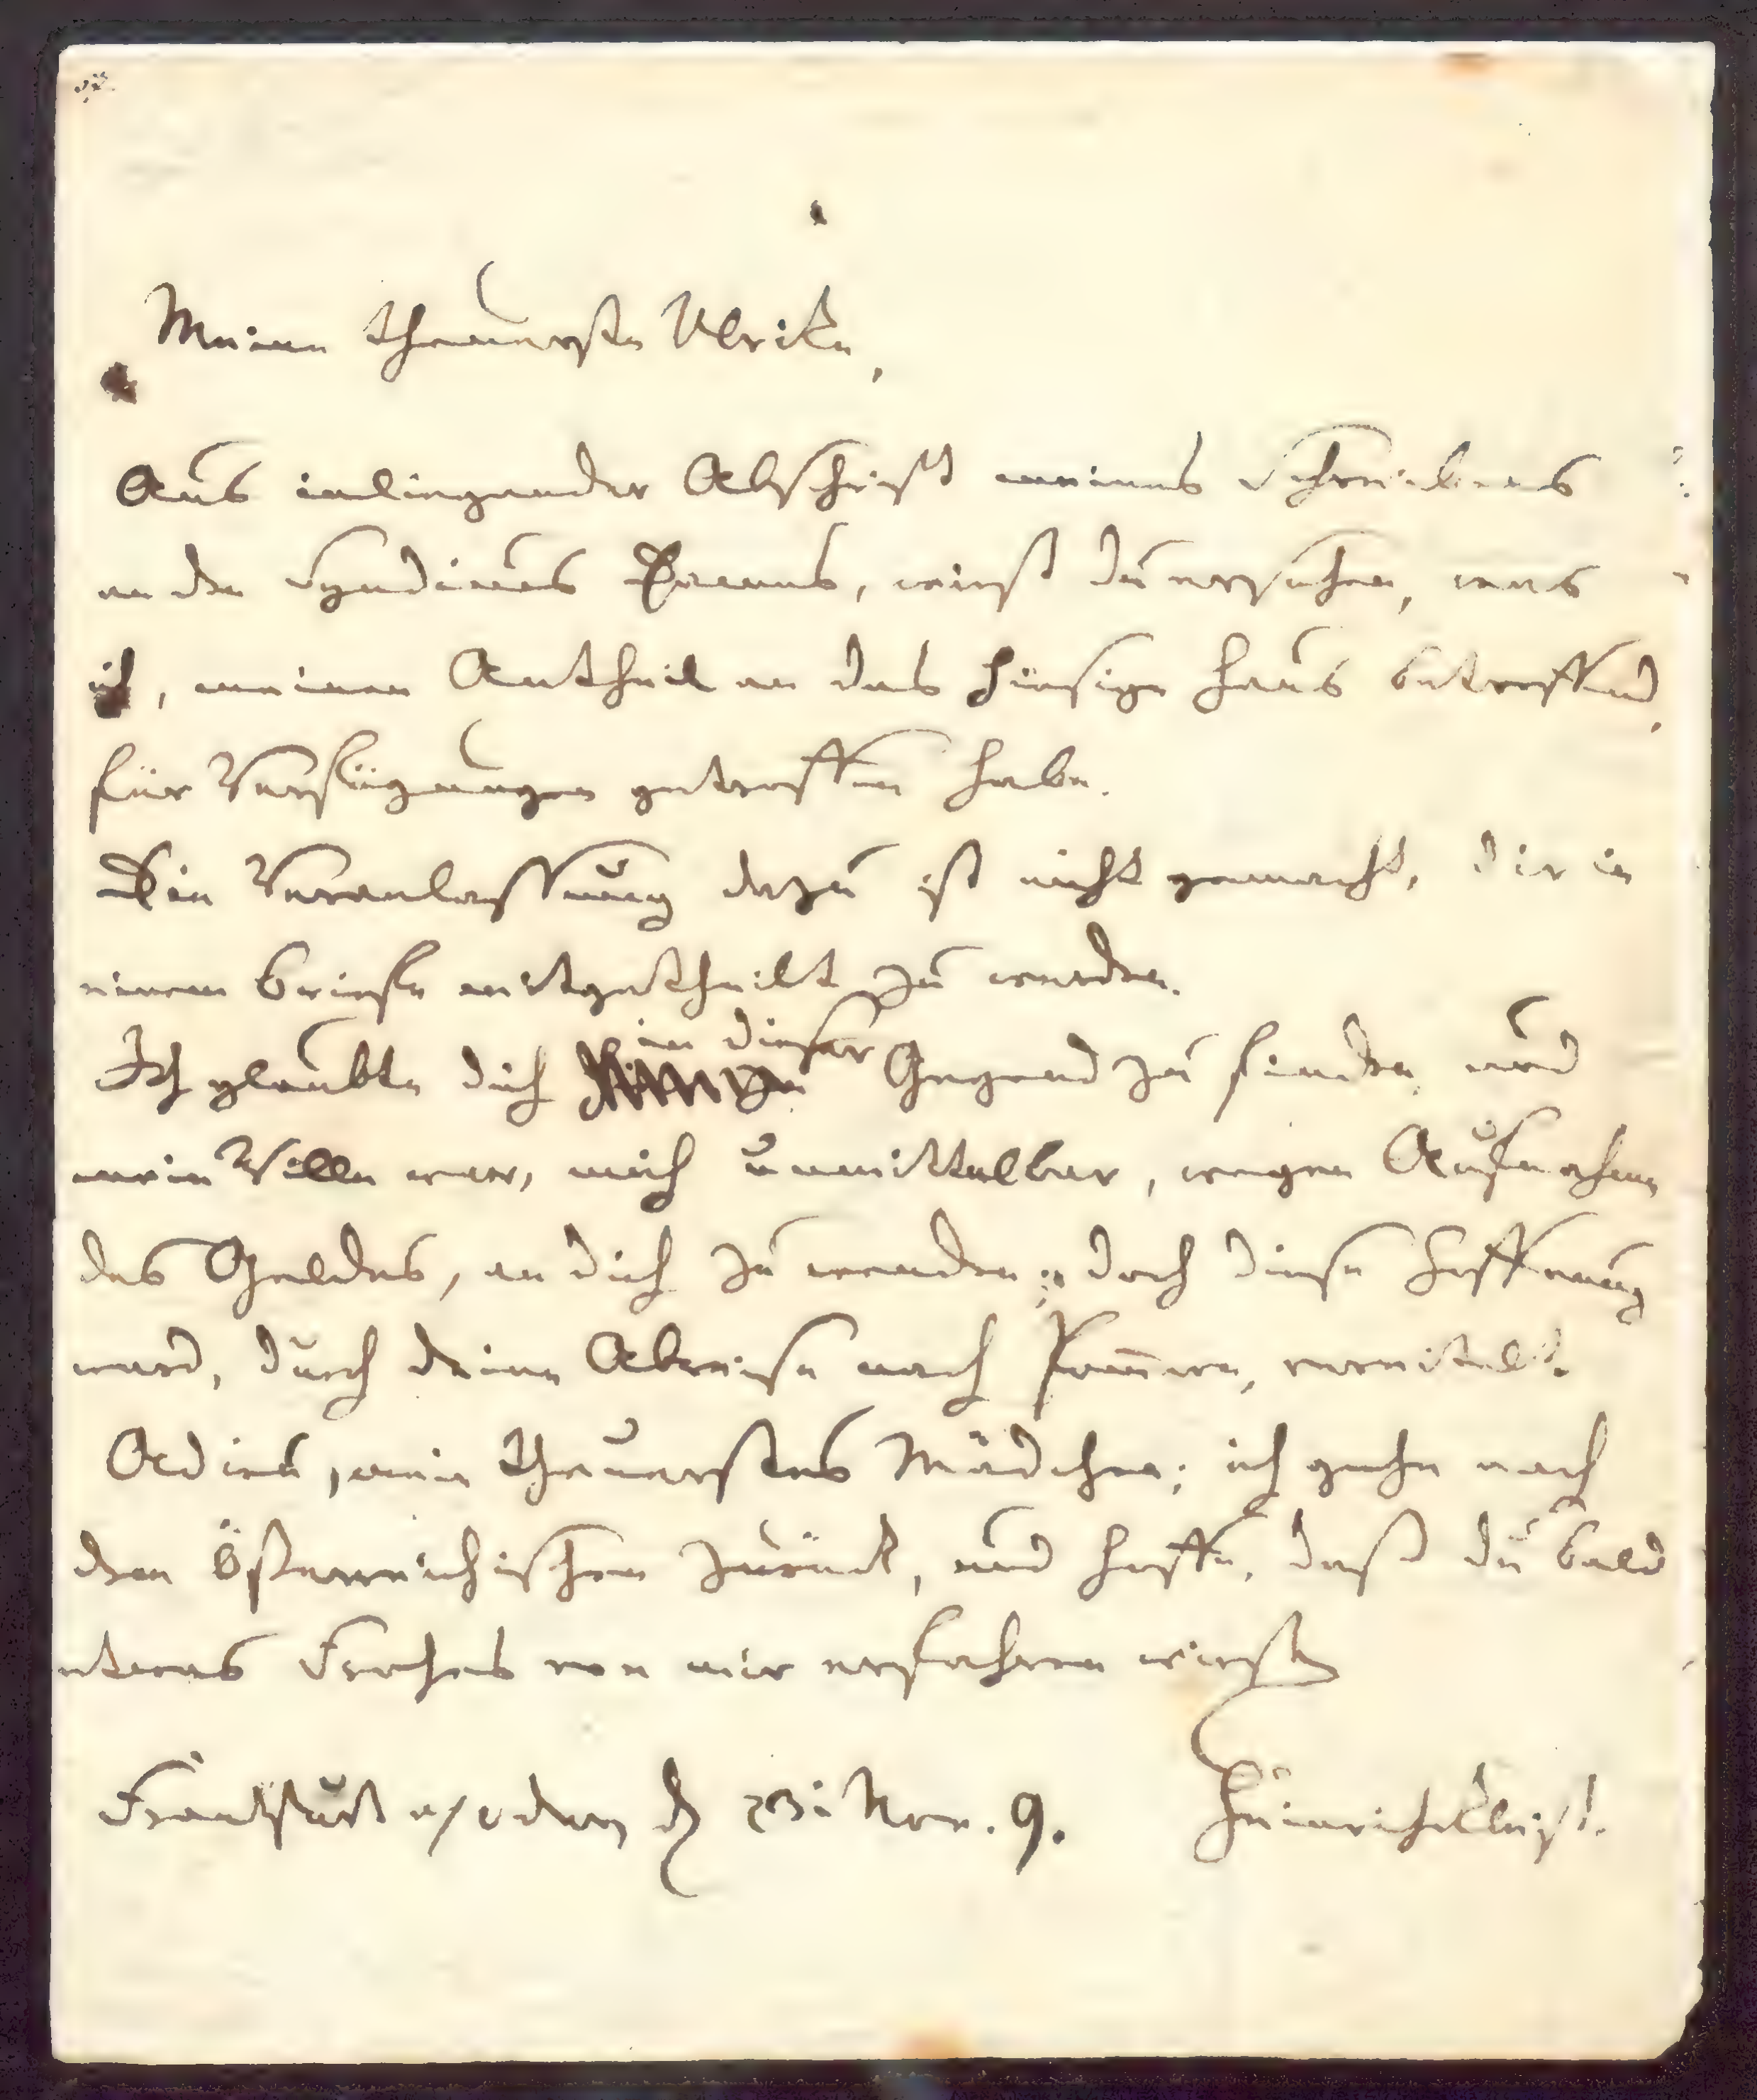 Meine theuerste Ulrike,
Aus inliegender Abschrift meines Schreibens
an den Syndicus Dames, wirst du ersehen, was
ich, meinen Antheil an das hiesige Haus betreffend,
für Verfügungen getroffen habe.
Die Veranlassung dazu ist nicht gemacht, dir in
einem Briefe mitgetheilt zu werden.
in dieser
Ich glaubte dich Gegend zu finden, und
mein Wille war, mich unmittelbar, wegen Aufnahme
des Geldes, an dich zu wenden; doch diese Hoffnung
ward, durch deine Abreise nach Pom̅ern, vereitelt.
Adieu, mein theuerstes Mädchen; ich gehe nach
dem Österreichischen zurück, und hoffe, daß du bald
etwas Frohes von mir erfahren wirst.
Frankfurt a/Oder, d 23t Nov. 9. Heinrich Kleist.